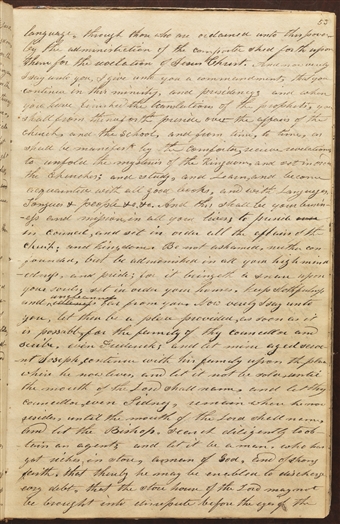 53
language, through those who are ordained unto this power
by the administration of the comforter shed forth upon
them for the revelation of Jesus Christ. And now verily
I say unto you, I give unto you a commandment, that you
continue in this ministry, and presidency; and when
you have finished the translation of the prophets, you
shall from thenceforth preside over the affairs of the
church, and the School, and from time, to time, as
shall be manifest by the comforter, receive revelations
to unfold the mysteries of the Kingdom, and set in order
the churches; and study, and learn, and become
acquainted with all good books, and with Languages
Tongues & people &c. &c. And this shall be your busin-
ess and mission in all your lives; to preside
in council, and set in order all the affairs of this
church; and kingdom. Be not ashamed, neither con-
founded, but be admonished in all your highmind-
edness, and pride; for it bringeth a snare upon
your souls; set in order your houses. Keep slothfulness
and uncleanness far from you. Now verily I say unto
you, let there be a place provided, as soon as it
is possible, for the family of thy councellor and
scribe, even Frederick; and let mine aged serva-
nt Joseph, continue with his family upon the place
where he now lives, and let it not be sold, until
the mouth of the Lord shall name, and let thy
councellor, even Sidney, remain where he now
resides, until the mouth of the Lord shall name,
And let the Bishop, search diligently to ob-
tain an agent, and let it be a man, who has
got riches in store, a man of God, and of strong
faith, that thereby he may be enabled to discharge
every debt, that the store house of the Lord may not
be brought into disrepute before the eyes of the